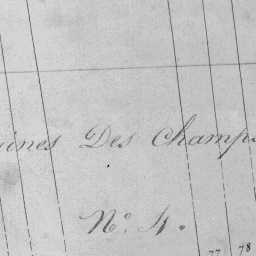 ines Des Champs
Nº 4.
77 78